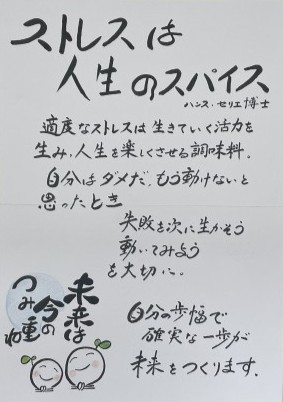 ストレスは
人生のスパイス
ハンス・セリエ博士
適度なストレスは生きていく活力を
生み、人生を楽しくさせる調味料。
自分はダメだ、もう動けないと
思ったとき
失敗を次に生かそう
動いてみよう
を大切に。
未来は
今の
つみ重ね
自分の歩幅で
確実な一歩が
未来をつくります。